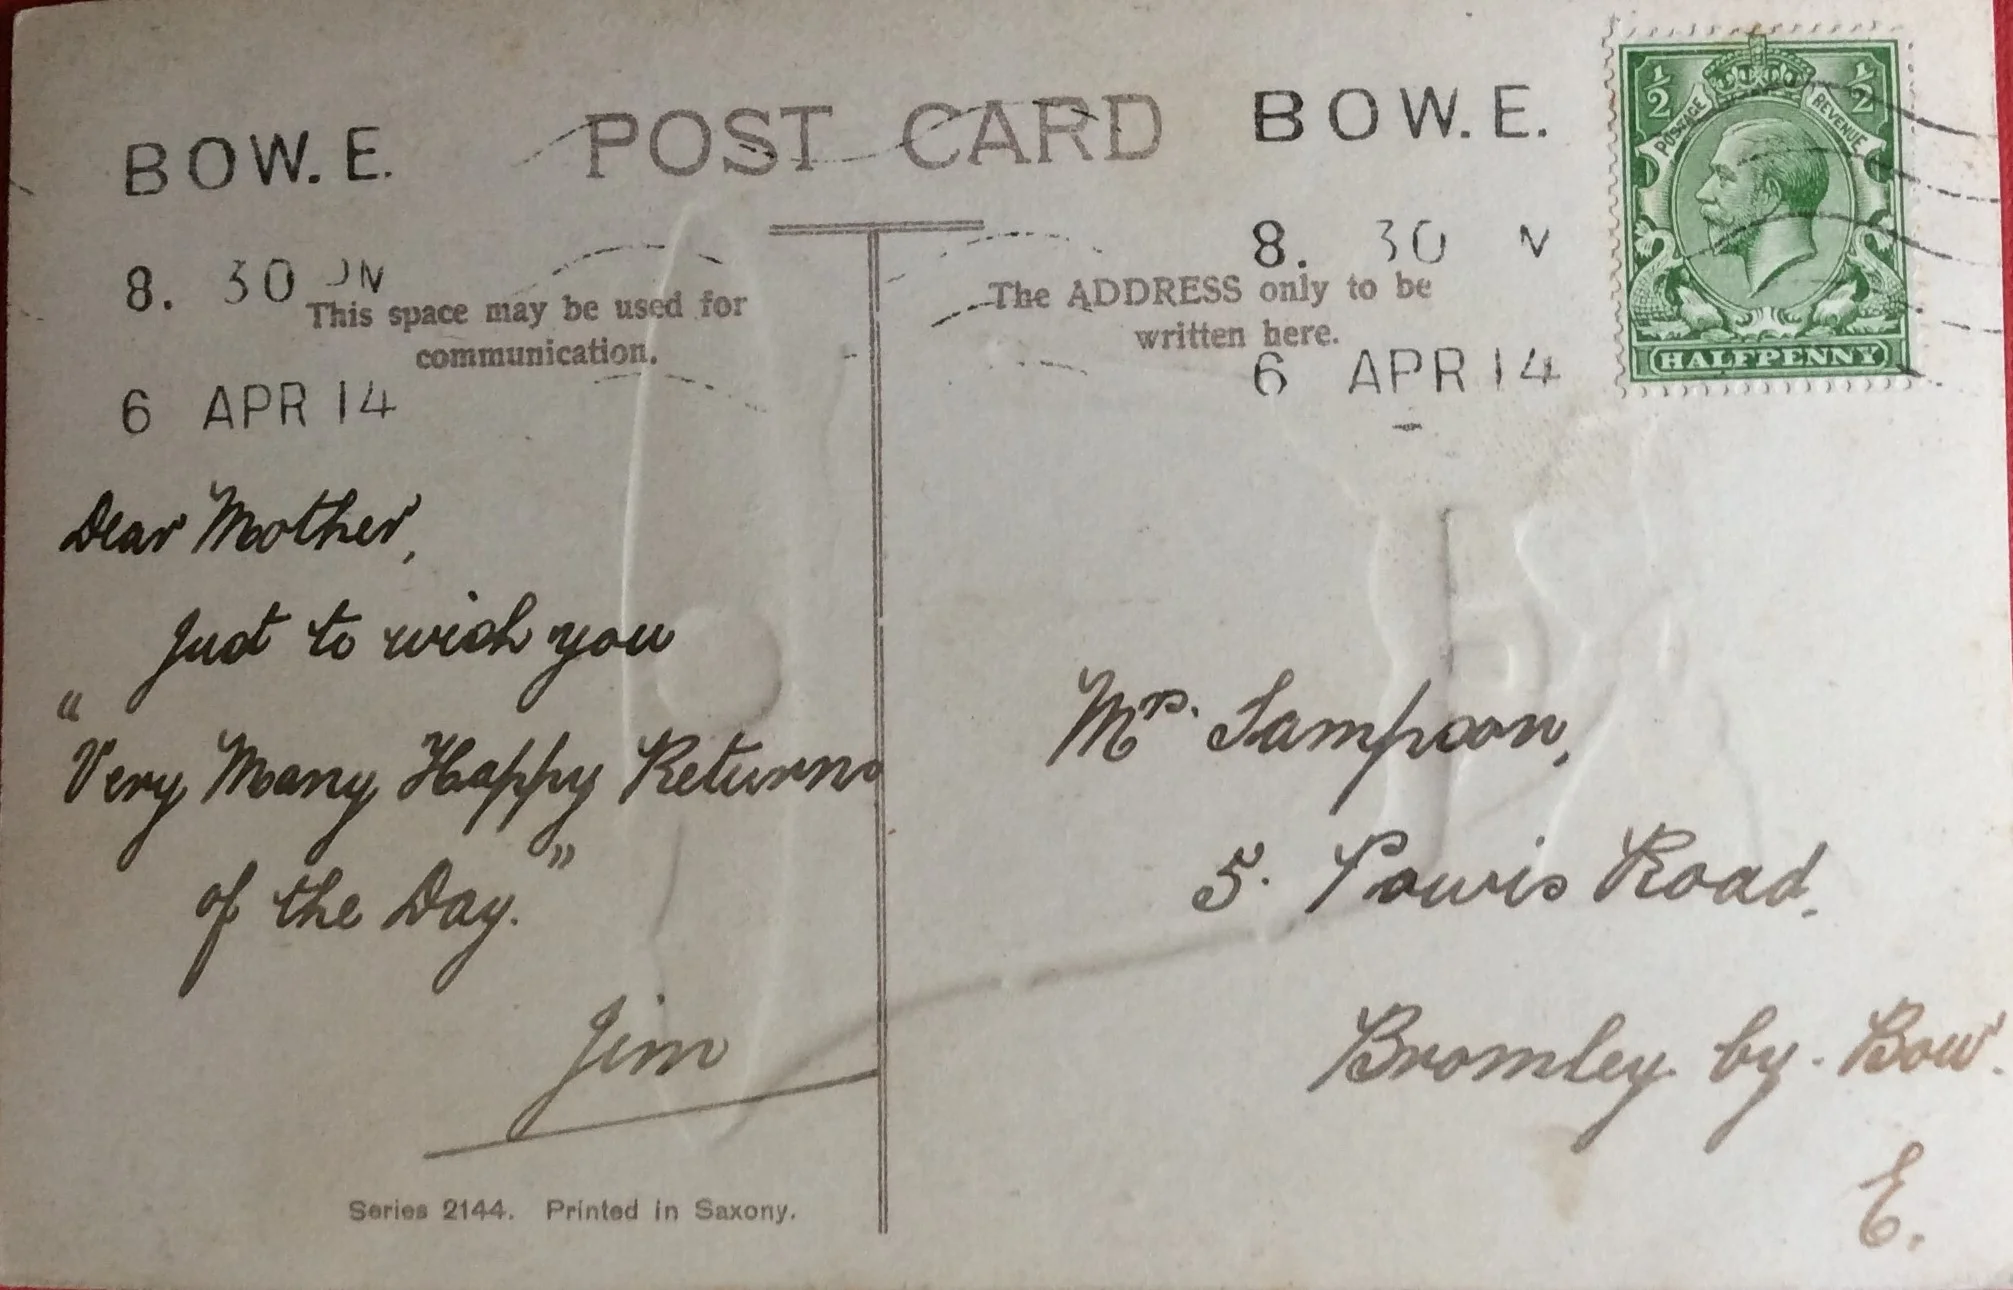 POST CARD
BOW. E.
8. 30
6 APR 14
BOW. E.
8. 30
6 APR 14
½ ½
POSTAGE REVENUE
HALFPENNY
This space may be used for
communication.
The ADDRESS only to be
written here.
Dear Mother,
Just to wish you
"
Very Many Happy Returns
of the Day."
Jim
Mrs. Sampson,
5. Powis Road,
Bromley by. Bow.
E.
Series 2144. Printed in Saxony.